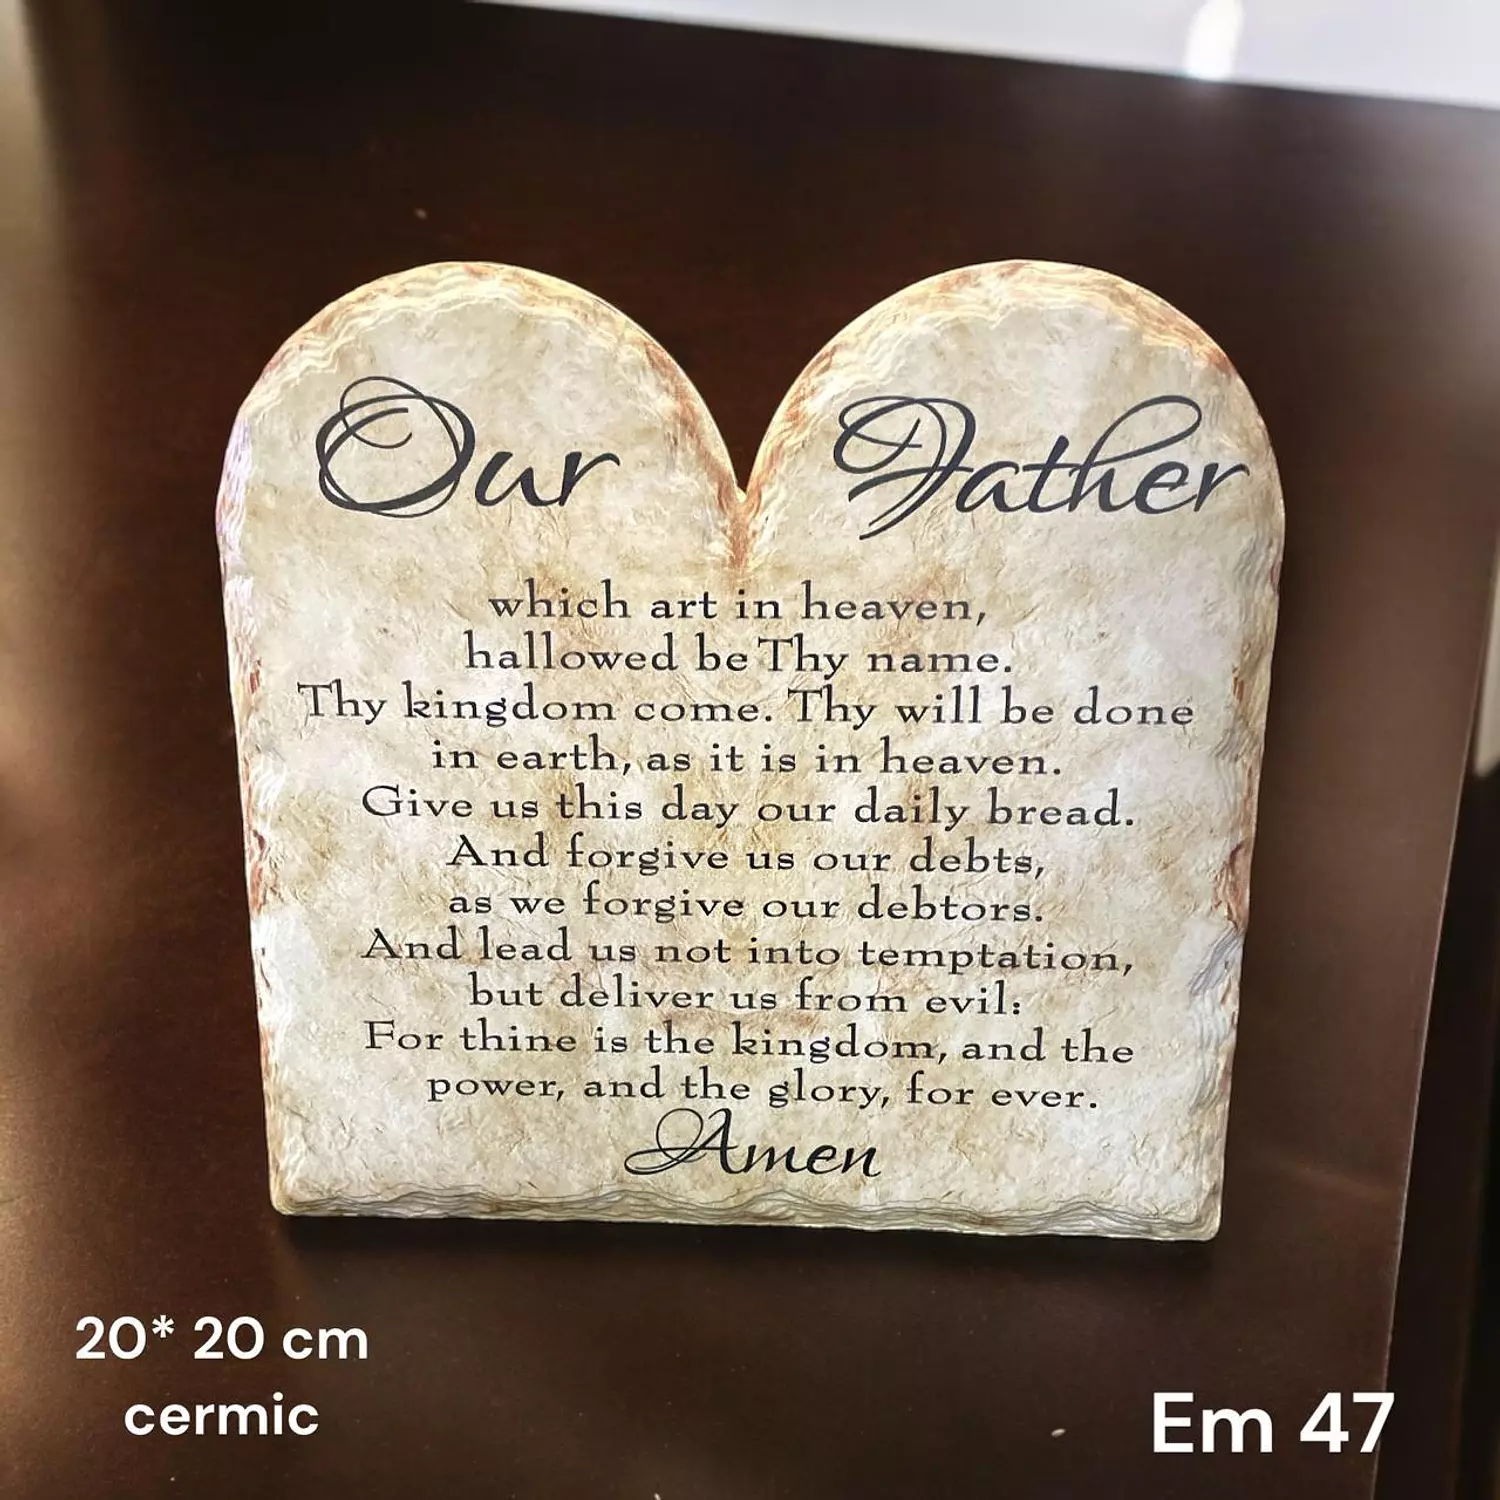 Our Father
which art in heaven,
hallowed be Thy name.
Thy kingdom come. Thy will be done
in earth, as it is in heaven.
Give us this day our daily bread.
And forgive us our debts,
as we forgive our debtors.
And lead us not into temptation,
but deliver us from evil:
For thine is the kingdom, and the
power, and the glory, for ever.
Amen
20* 20 cm
cermic
Em 47